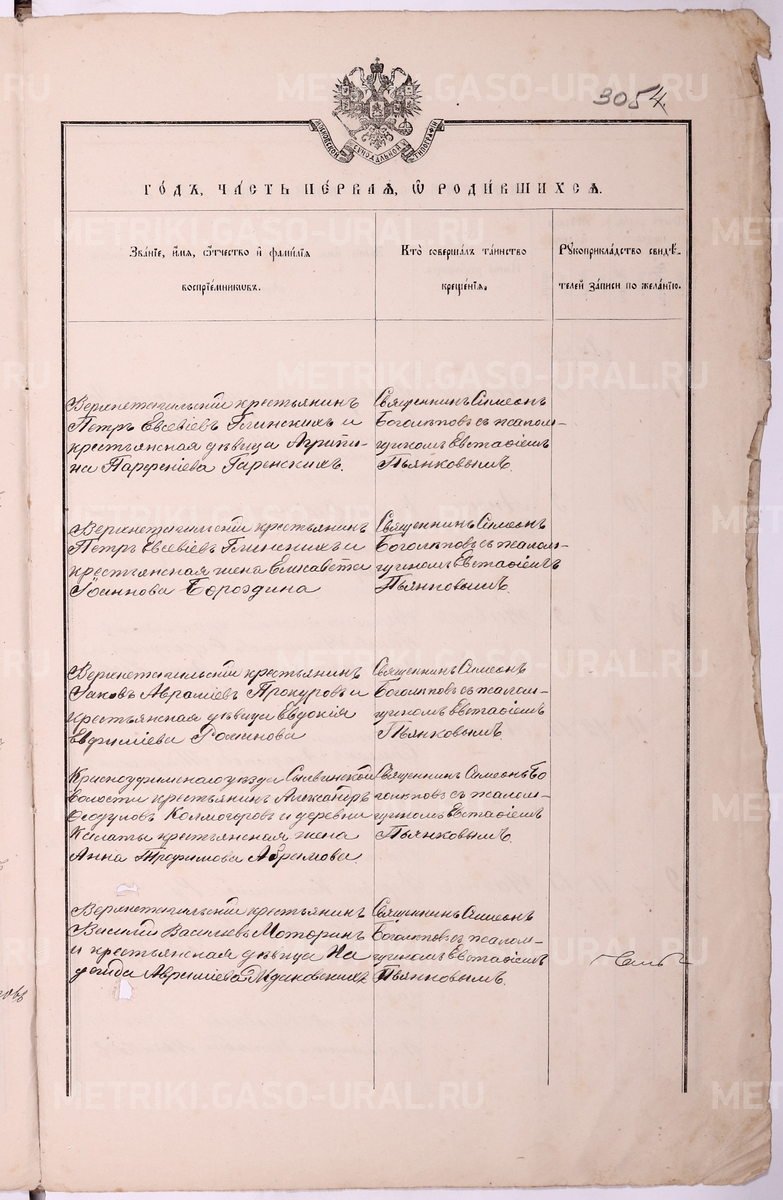 3054.
МОСКОВСКОЙ СѴНОДАЛЬНОЙ ТИПОГРАФІИ
ГО́ДЪ, ЧА́СТЬ ПЕ́РВАЯ, Ѡ РОДИ́ВШИХСЯ.
Зва́ніе, и́мя, ѻ́тчество и҆ фами́лія
воспріе́мникѡвъ.
Кто̀ соверша́лъ та́инство
креще́нія.
Рꙋкоприкла́дство свидѣ́-
телей за́писи по жела́нію.
Верхнетагильскій крестьянинъ
Петръ Евсевіевъ Глинскихъ и
крестьянская дѣвица Агрипи-
на Парфеніева Гаренскихъ.
Священникъ Симеонъ
Боголѣповъ съ псалом-
щикомъ Евстафіемъ
Пьянковымъ.
Верхнетагильскій крестьянинъ
Петръ Евсевіевъ Глинскихъ и
крестьянская жена Елисавета
Іоаннова Бороздина
Священникъ Симеонъ
Боголѣповъ съ псалом-
щикомъ Евстафіемъ
Пьянковымъ.
Верхнетагильскій крестьянинъ
Іаковъ Авраміевъ Прокуровъ и
крестьянская дѣвица Евдокія
Евфиміева Романова
Священникъ Симеонъ
Боголѣповъ съ псалом-
щикомъ Евстафіемъ
Пьянковымъ.
Красноуфимскаго уѣзда Сылвинской
волости крестьянинъ Александръ
Ѳеодуловъ Колмогоровъ и деревни
крестьянская жена
Анна Трофимова Абрамова.
Священникъ Симеонъ Бо
голѣповъ съ псалом-
щикомъ Евстафіемъ
Пьянковымъ.
Верхнетагильскій крестьянинъ
Василій Васильевъ Моторинъ
и крестьянская дѣвица На
дежда Авраміева
Священникъ Симеонъ
Боголѣповъ съ псалом-
щикомъ Евстафіемъ
Пьянковымъ.
METRIKI.GASO-URAL.RU